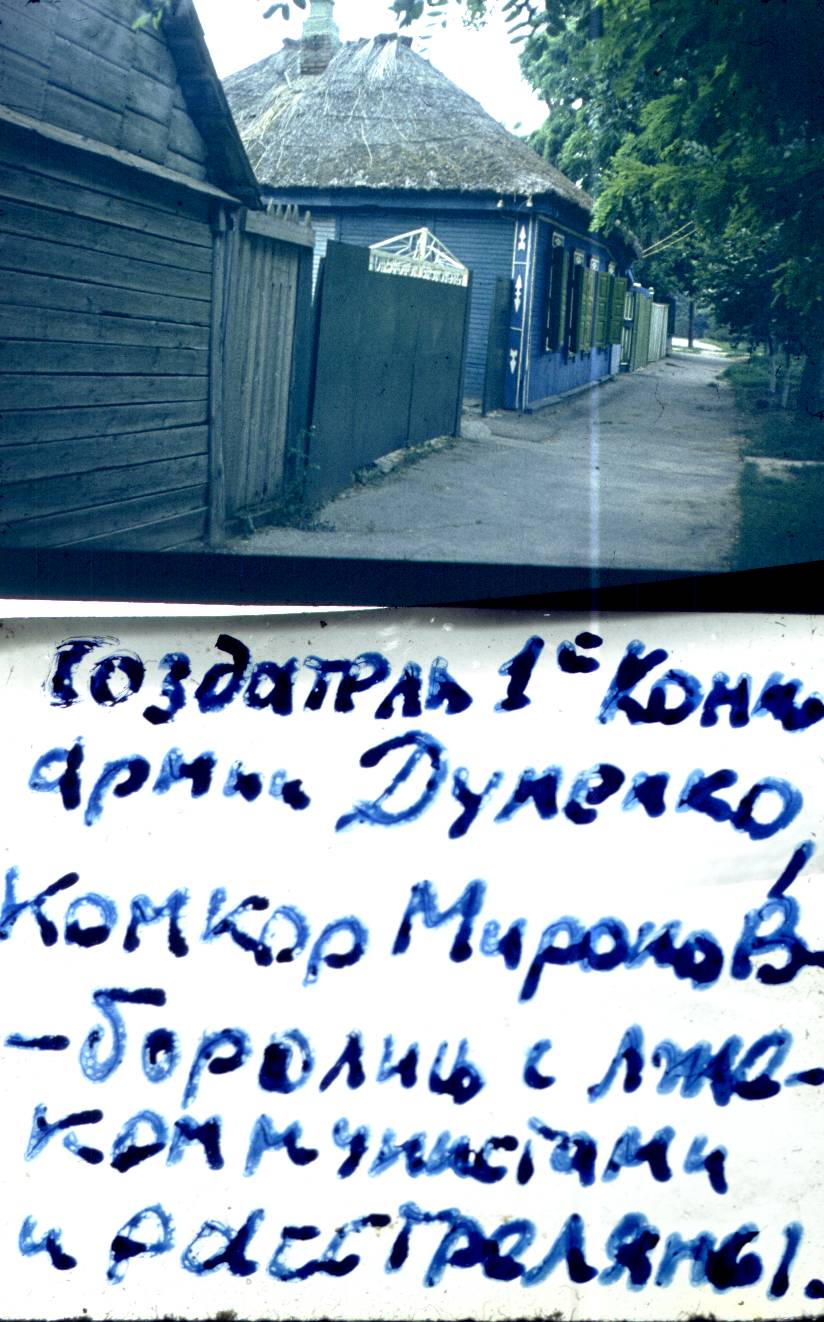 Создатель 1й Конн
армии Думенко,
Комкор Миронов-
-боролись с лже-
коммунистами
и расстреляны.